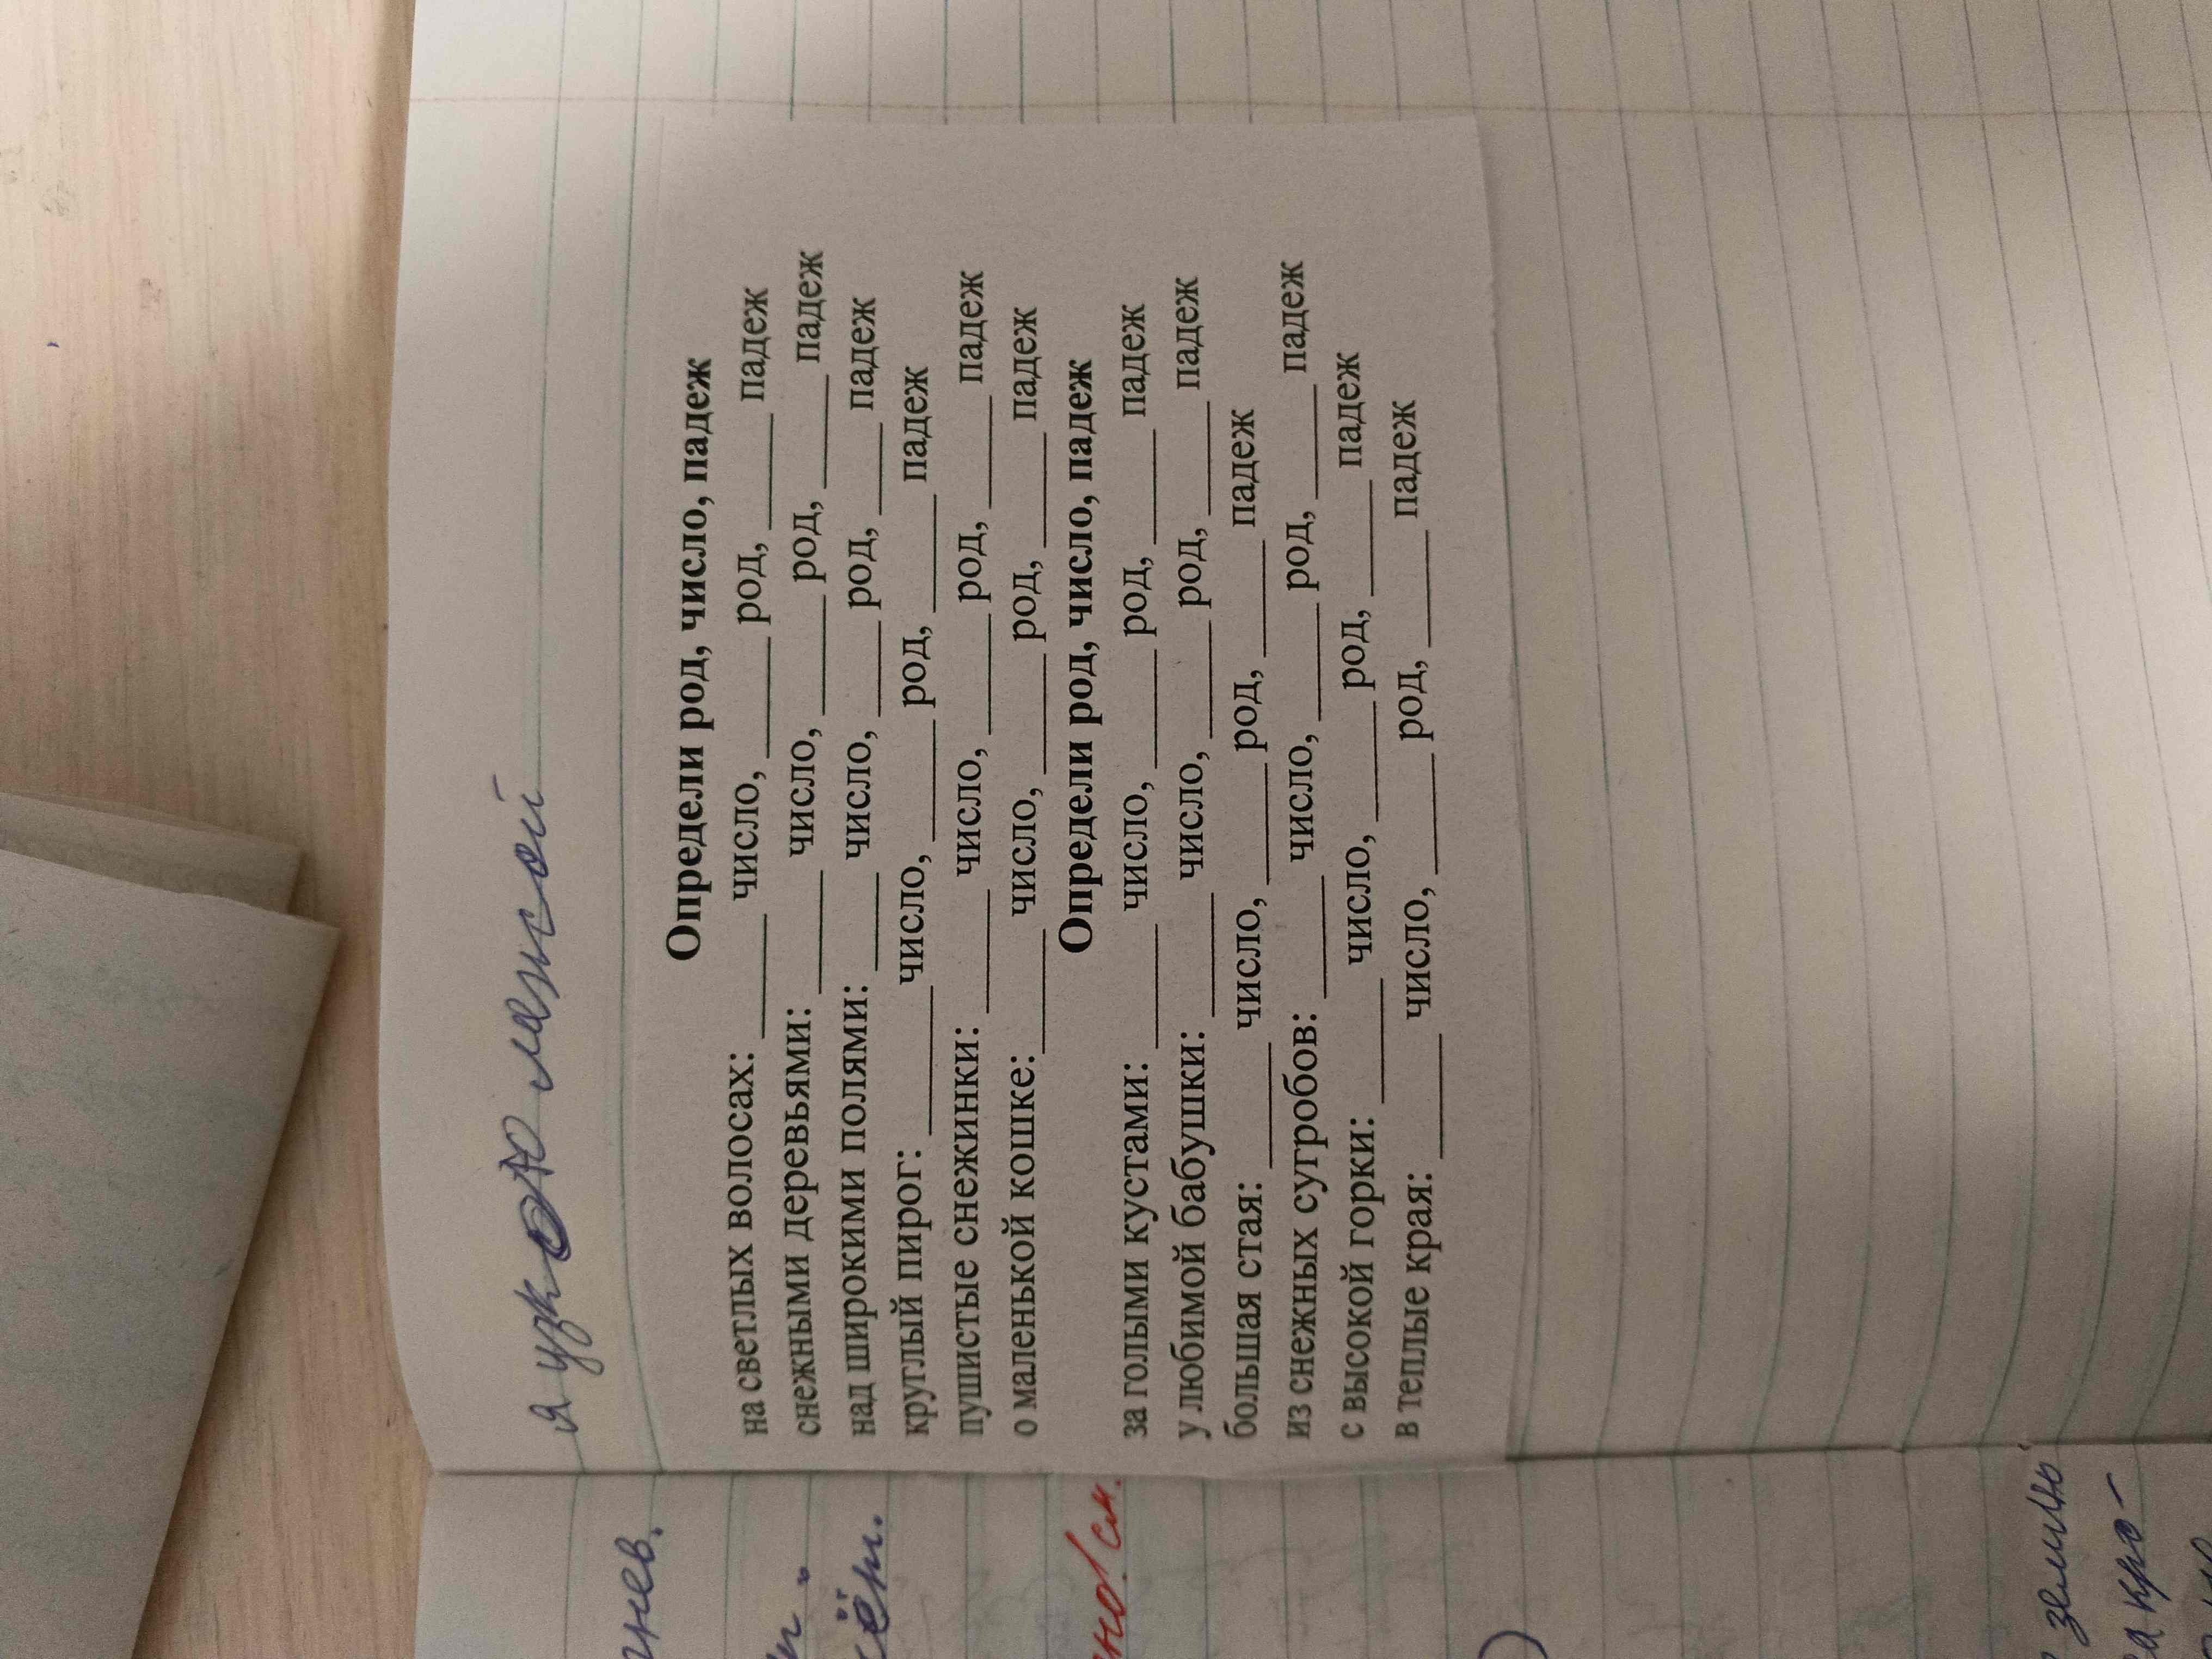 я узкою мансой
Определи род, число, падеж
на светлых волосах: ______ число, ______ род, ______ падеж
снежными деревьями: ______ число, ______ род, ______ падеж
над широкими полями: _____ число, _____ род, _____ падеж
круглый пирог: _______ число, ______ род, ______ падеж
пушистые снежинки: ______ число, ______ род, ______ падеж
о маленькой кошке: ______ число, ______ род, ______ падеж
Определи род, число, падеж
за голыми кустами: ______ число, ______ род, ______ падеж
у любимой бабушки: ______ число, ______ род, ______ падеж
большая стая: ______ число, ______ род, ______ падеж
из снежных сугробов: ______ число, ______ род, ______ падеж
с высокой горки: ______ число, ______ род, ______ падеж
в теплые края: ______ число, ______ род, ______ падеж